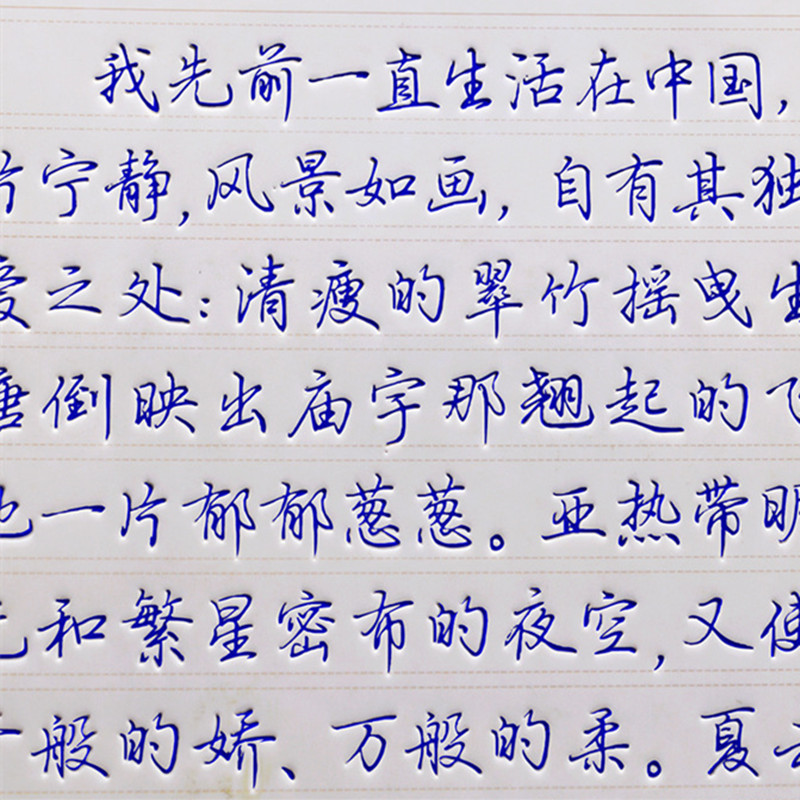 我先前一直生活在中国,
片宁静,风景如画,自有其独
爱之处:清瘦的翠竹摇曳生
塘倒映出庙宇那翘起的飞
地一片郁郁葱葱。亚热带明
光和繁星密布的夜空,又使
千般的娇、万般的柔。夏